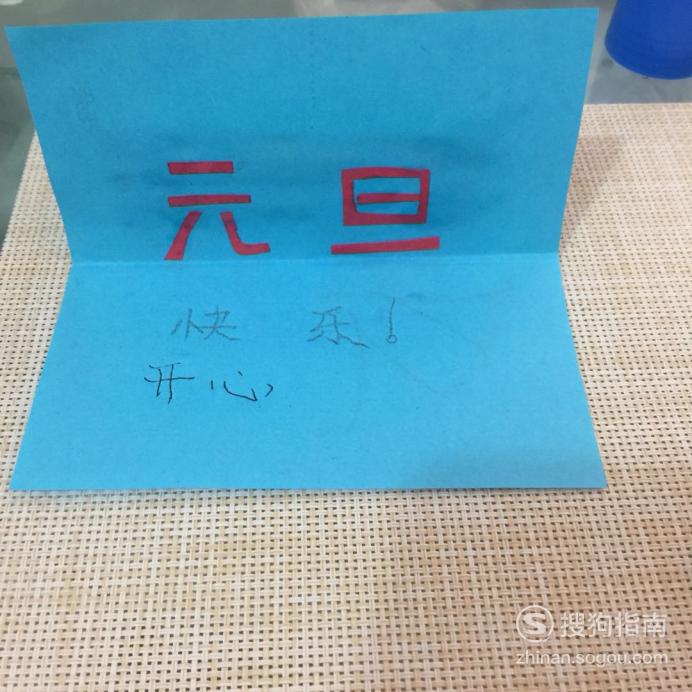 元旦
快乐!
开心,
搜狗指南
zhinan.sogou.com